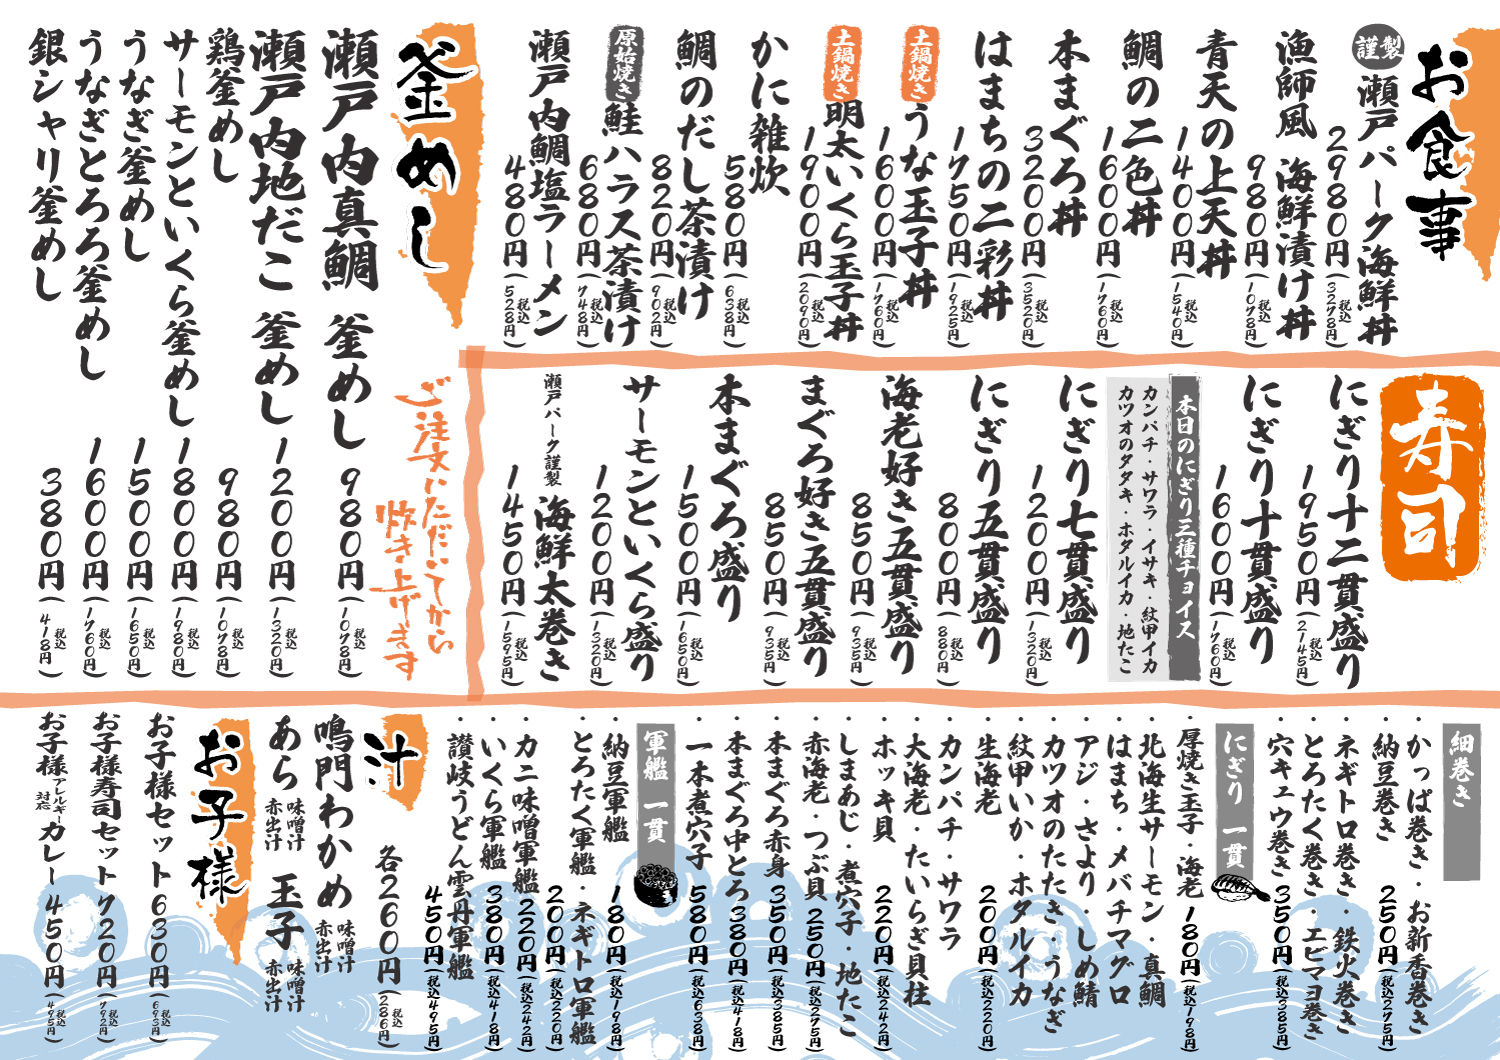 お食事
謹製 瀬戸パーク海鮮丼
2980円(税込3278円)
漁師風 海鮮漬け丼
980円(税込1078円)
青天の上天丼
1400円(税込1540円)
鯛の二色丼
1600円(税込1760円)
本まぐろ丼
3200円(税込3520円)
はまちの二彩丼
1750円(税込1925円)
土鍋焼き うな玉子丼
1600円(税込1760円)
土鍋焼き 明太いくら玉子丼
1900円(税込2090円)
かに雑炊
580円(税込638円)
鯛のだし茶漬け
820円(税込902円)
原始焼き 鮭ハラス茶漬け
680円(税込748円)
瀬戸内鯛塩ラーメン
480円(税込528円)
釜めし
瀬戸内真鯛 釜めし
980円(税込1078円)
瀬戸内地だこ 釜めし
1200円(税込1320円)
鶏釜めし
980円(税込1078円)
サーモンといくら釜めし
1800円(税込1980円)
うなぎ釜めし
1500円(税込1650円)
うなぎとろろ釜めし
1600円(税込1760円)
銀シャリ釜めし
380円(税込418円)
ご注文いただいてから
炊き上げます
寿司
にぎり十二貫盛り
1950円(税込2145円)
にぎり十貫盛り
1600円(税込1760円)
本日のにぎり三種チョイス
カンパチ・サワラ・イサキ・紋甲イカ
カツオのタタキ・ホタルイカ・地たこ
にぎり七貫盛り
1200円(税込1320円)
にぎり五貫盛り
800円(税込880円)
海老好き五貫盛り
850円(税込935円)
まぐろ好き五貫盛り
850円(税込935円)
本まぐろ盛り
1500円(税込1650円)
サーモンといくら盛り
1200円(税込1320円)
瀬戸パーク謹製 海鮮太巻き
1450円(税込1595円)
細巻き
・かっぱ巻き・お新香巻き
・納豆巻き
250円(税込275円)
・ネギトロ巻き・鉄火巻き
・とろたく巻き・エビマヨ巻き
・穴キュウ巻き
350円(税込385円)
にぎり 一貫
・厚焼き玉子・海老
180円(税込198円)
・北海生サーモン・真鯛
・はまち・メバチマグロ
・アジ・さより・しめ鯖
・カツオのたたき・うなぎ
・紋甲いか・ホタルイカ
・生海老
200円(税込220円)
・カンパチ・サワラ
・大海老・たいらぎ貝柱
・ホッキ貝
220円(税込242円)
・しまあじ・煮穴子・地たこ
・赤海老・つぶ貝
250円(税込275円)
・本まぐろ赤身
350円(税込385円)
・本まぐろ中とろ
380円(税込418円)
・一本煮穴子
580円(税込638円)
軍艦 一貫
・納豆軍艦
180円(税込198円)
・とろたく軍艦・ネギトロ軍艦
200円(税込220円)
・カニ味噌軍艦
220円(税込242円)
・いくら軍艦
380円(税込418円)
・讃岐うどん雲丹軍艦
450円(税込495円)
汁
各260円(税込286円)
鳴門わかめ 味噌汁 赤出汁
あら 味噌汁 赤出汁
玉子 味噌汁 赤出汁
お子様
お子様セット 630円(税込693円)
お子様寿司セット 720円(税込792円)
お子様アレルギー対応カレー 450円(税込495円)